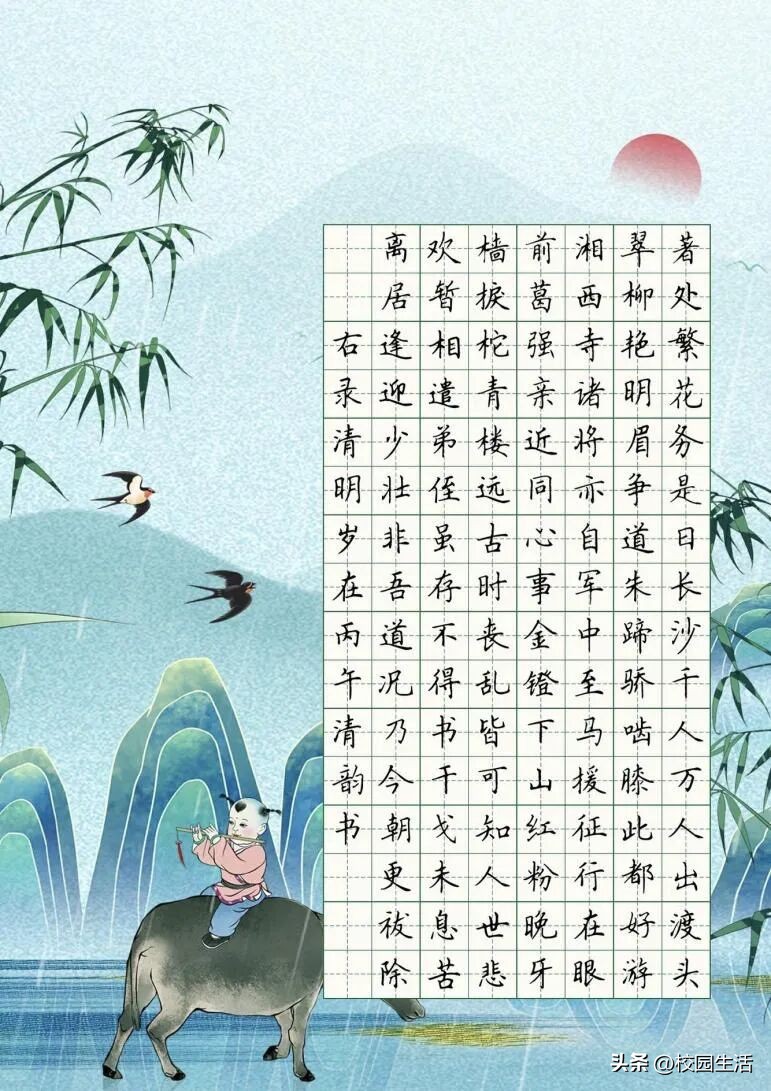 著处繁花务是日长沙千人万人出渡头
翠柳艳明眉争道朱蹄骄啮膝此都好游
湘西寺诸将亦自军中至马援征行在眼
前葛强亲近同心事金镫下山红粉晚牙
樯捩柁青楼远古时丧乱皆可知人世悲
欢暂相遣弟侄虽存不得书干戈未息苦
离居逢迎少壮非吾道况乃今朝更祓除
右录清明岁在丙午清韵书
头条 @校园生活